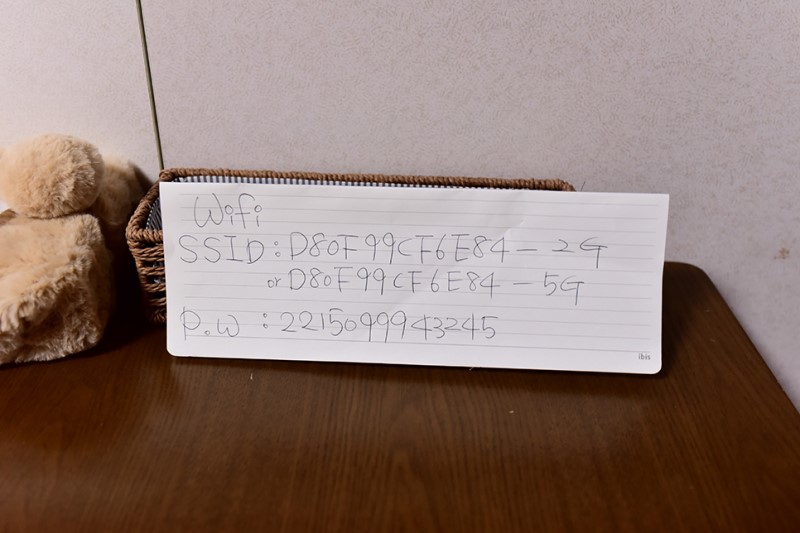 Wifi
SSID : D80F99CF6E84 - 2G
or D80F99CF6E84 - 5G
P.W : 2215099943245
ibis